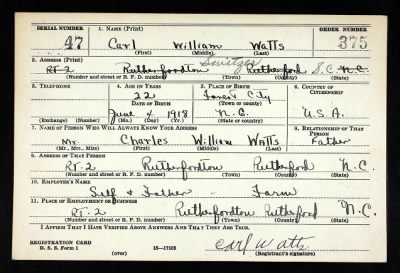 SERIAL NUMBER 1. NAME (Print) ORDER NUMBER
47 Carl William Watts 375
(First) (Middle) (Last)
2. ADDRESS (Print) Switzer
RT-2 Rutherfordton Rutherford S.C. N.C.
(Number and street or R. F. D. number) (Town) (County) (State)
3. TELEPHONE 4. AGE IN YEARS 5. PLACE OF BIRTH 6. COUNTRY OF CITIZENSHIP
22 Forest City
DATE OF BIRTH (Town or county)
June 4 1918 N.C. U.S.A.
(Exchange) (Number) (Mo.) (Day) (Yr.) (State or country)
7. NAME OF PERSON WHO WILL ALWAYS KNOW YOUR ADDRESS 8. RELATIONSHIP OF THAT PERSON
Mr. Charles William Watts Father
(Mr., Mrs., Miss) (First) (Middle) (Last)
9. ADDRESS OF THAT PERSON
RT-2 Rutherfordton Rutherford N.C.
(Number and street or R. F. D. number) (Town) (County) (State)
10. EMPLOYER'S NAME
Self & Father - Farm
11. PLACE OF EMPLOYMENT OR BUSINESS
RT-2 Rutherfordton Rutherford N.C.
(Number and street or R. F. D. number) (Town) (County) (State)
I AFFIRM THAT I HAVE VERIFIED ABOVE ANSWERS AND THAT THEY ARE TRUE.
REGISTRATION CARD
D. S. S. Form 1 16-17105 Carl Watts
(over) (Registrant's signature)